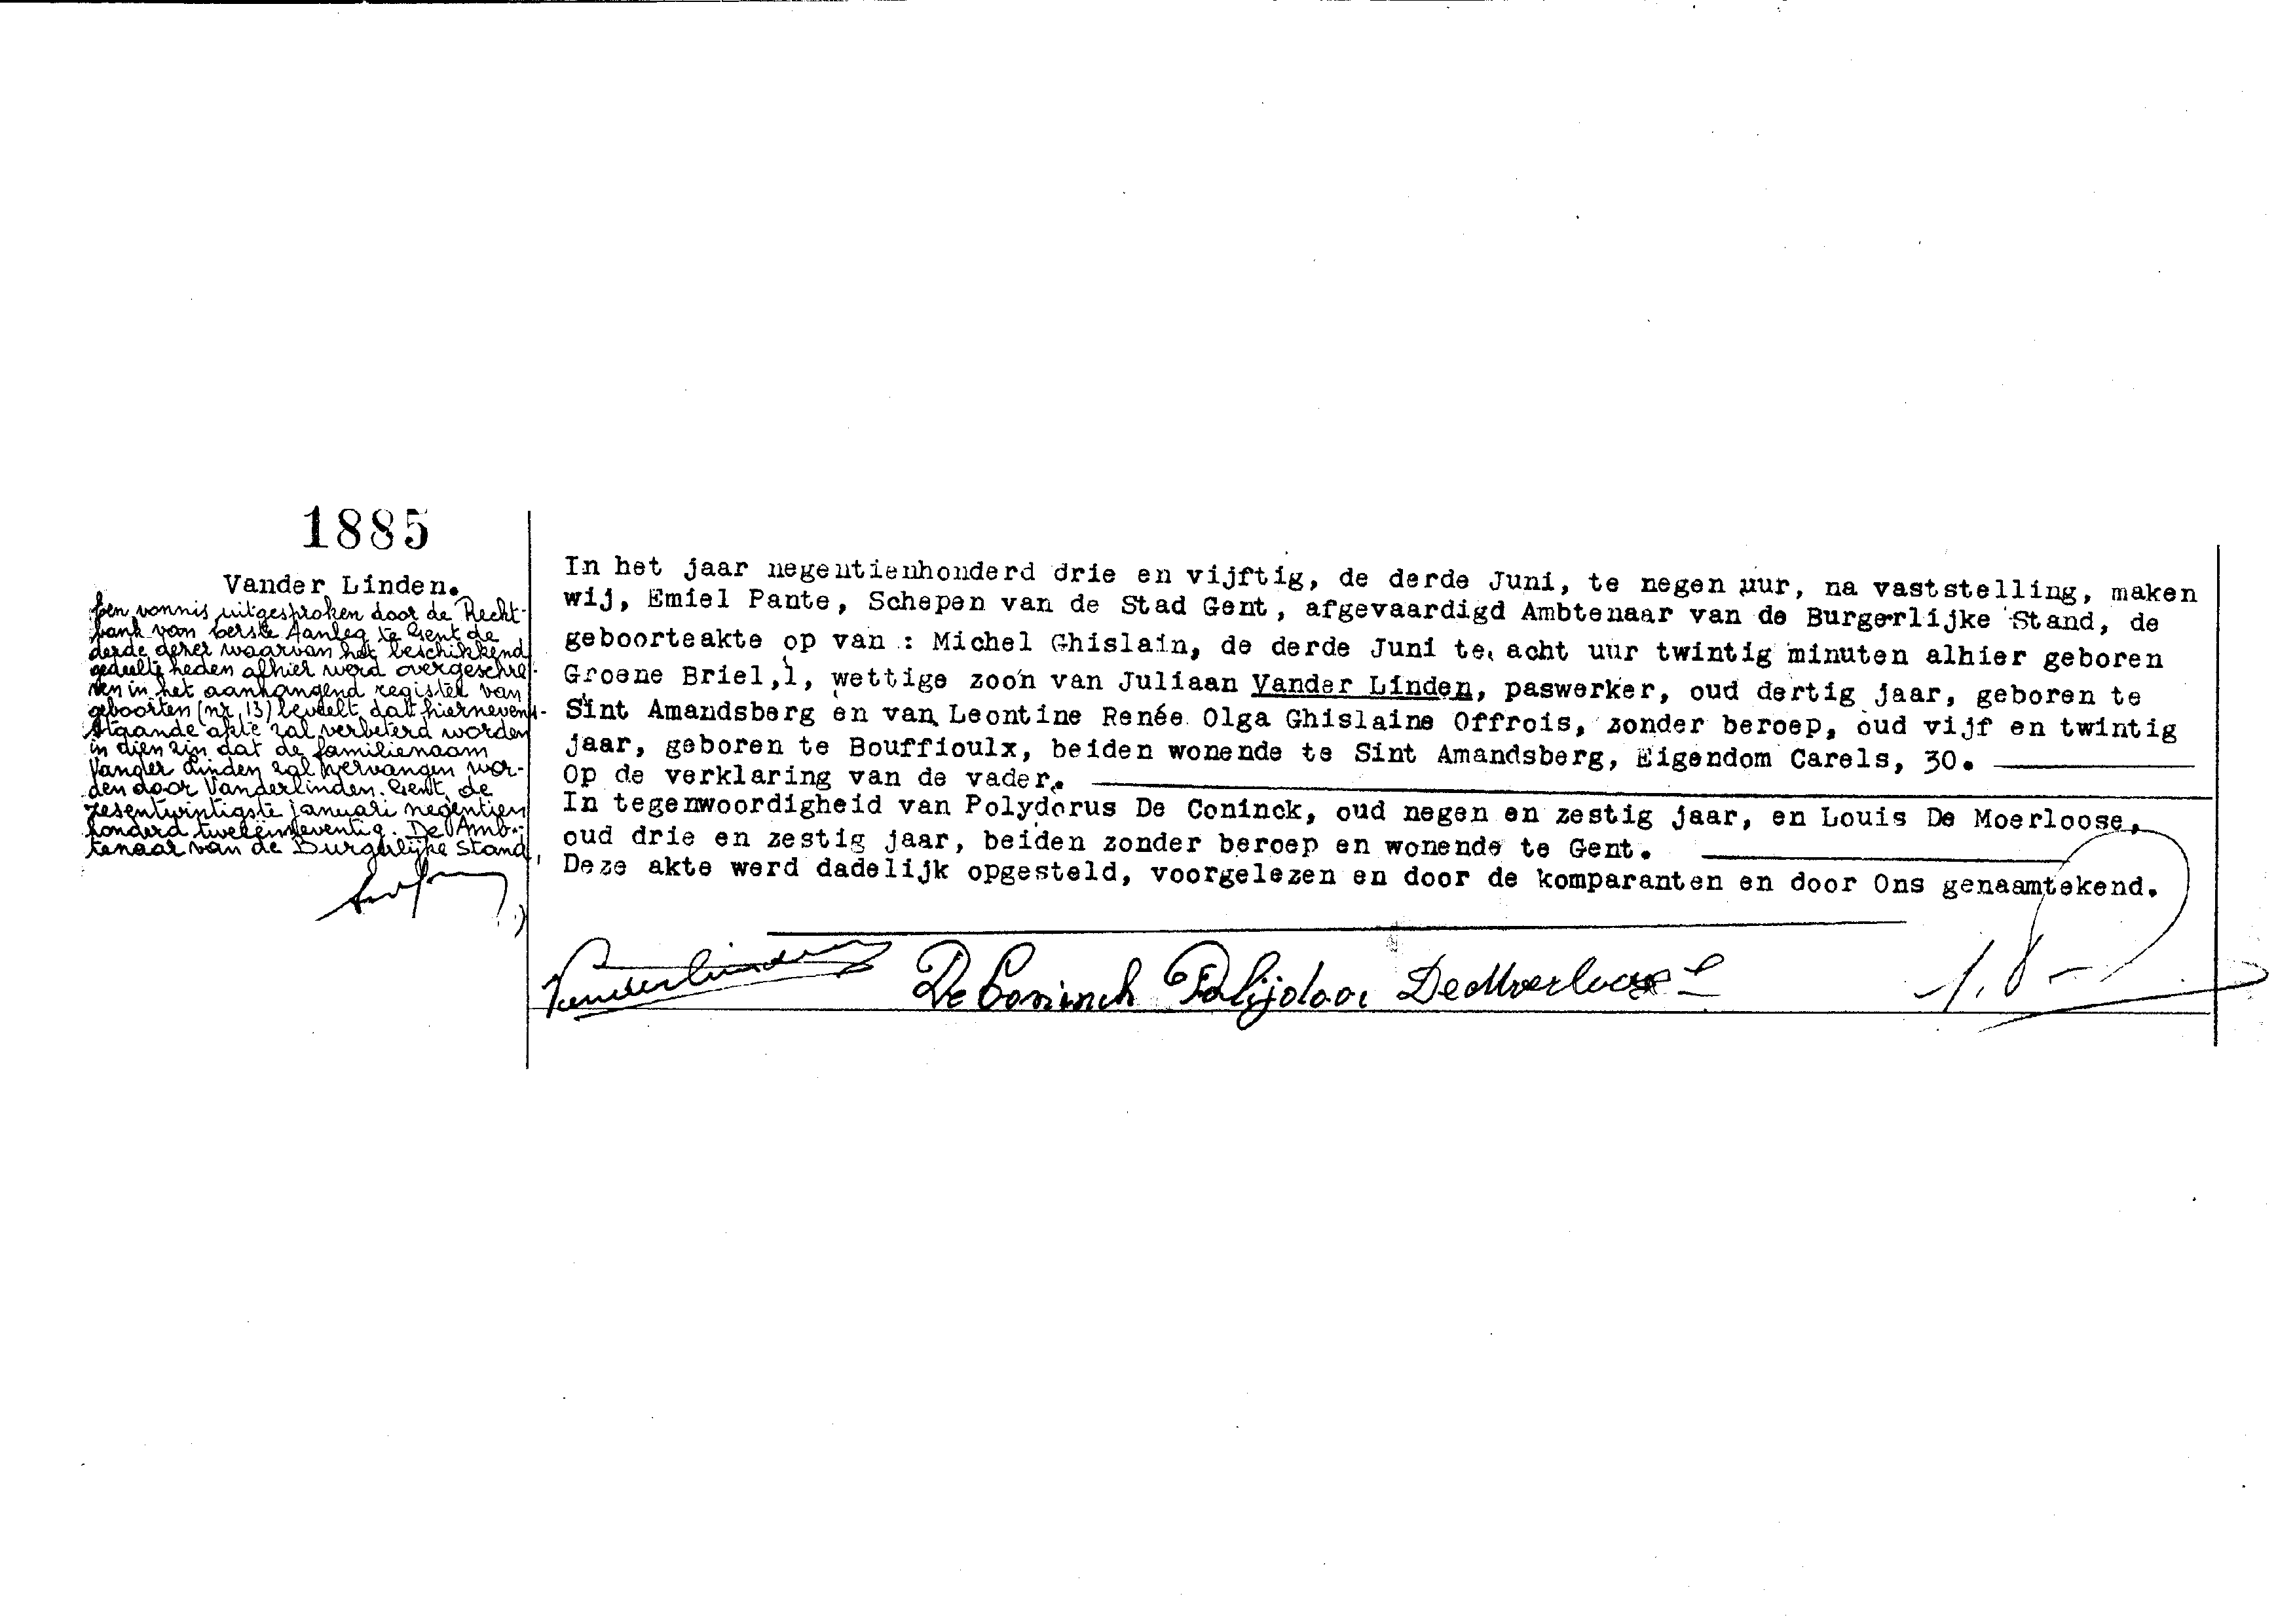 1885
Vander Linden.
Een vonnis uitgesproken door de Recht-
bank van Eerste Aanleg te Gent de
derde dezer waarvan het beschikkend
gedeelte heden alhier werd overgeschre-
ven in het aanhangend register van
geboorten (nr 13) beveelt dat hiernevens-
staande akte zal verbeterd worden
in dien zin dat de familienaam
Vander Linden zal vervangen wor-
den door Vanderlinden. Gent, de
zesentwintigste januari negentien
honderd tweeënzeventig. De Amb-
tenaar van de Burgerlijke Stand,
In het jaar negentienhonderd drie en vijftig, de derde Juni, te negen uur, na vaststelling, maken
wij, Emiel Pante, Schepen van de Stad Gent, afgevaardigd Ambtenaar van de Burgerlijke Stand, de
geboorteakte op van : Michel Ghislain, de derde Juni te acht uur twintig minuten alhier geboren
Groene Briel,1, wettige zoon van Juliaan Vander Linden, paswerker, oud dertig jaar, geboren te
Sint Amandsberg en van Leontine Renée Olga Ghislaine Offrois, zonder beroep, oud vijf en twintig
jaar, geboren te Bouffioulx, beiden wonende te Sint Amandsberg, Eigendom Carels, 30.
Op de verklaring van de vader.
In tegenwoordigheid van Polydorus De Coninck, oud negen en zestig jaar, en Louis De Moerloose,
oud drie en zestig jaar, beiden zonder beroep en wonende te Gent.
Deze akte werd dadelijk opgesteld, voorgelezen en door de komparanten en door Ons genaamtekend.
Vanderlinden De Coninck Polijdoor DeMoerloose L